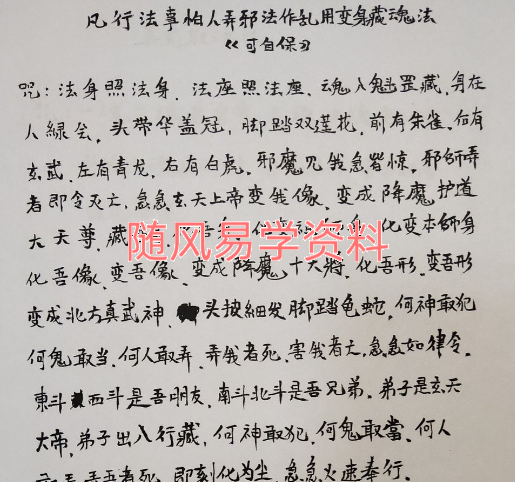 凡行法事怕人弄邪法作乱用变身藏魂法
《可自保》
咒:法身照法身.法座照法座、魂入魁罡藏.身在
人緣会.头带华盖冠,脚踏双莲花,前有朱雀.后有
玄武.左有青龙,右有白虎.邪魔见我急皆惊.邪師弄
者即令灭亡,急急玄天上帝变我像、变成降魔护道
大天尊.藏 化变本師身
随风易学资料
化吾像、变吾像、变成降魔十大將.化吾形.变吾形
变成北方真武神、头披細发脚踏龟蛇,何神敢犯
何鬼敢当.何人敢弄.弄我者死.害我者亡.急急如律令.
東斗西斗是吾明友,南斗北斗是吾兄弟.弟子是玄天
大帝,弟子出入行藏,何神敢犯.何鬼敢當.何人
弄吾者死.即刻化为尘.急急火速奉行.